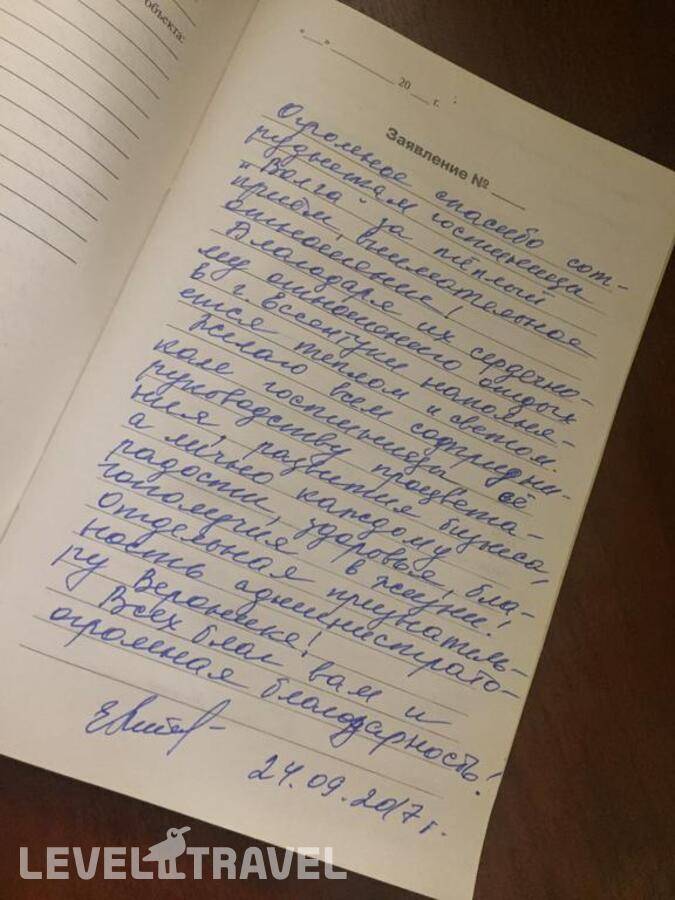 объекта:
"___" ________ 20 ___ г.
Заявление № ____
Огромное спасибо сот-
рудникам гостиницы
"Волга" за тёплый
приём, внимательное
отношение!
Благодаря их сердечно-
му отношению отдых
в г. Ессентуки наполня-
ется теплом и светом.
Желаю всем сотрудни-
кам гостиницы, её
руководству процвета-
ния, развития бизнеса,
а лично каждому
радости, здоровья, бла-
гополучия в жизни!
Отдельная признатель-
ность администрато-
ру Веронике!
Всех благ вам и
огромная благодарность!
24.09.2017 г.
LEVEL TRAVEL